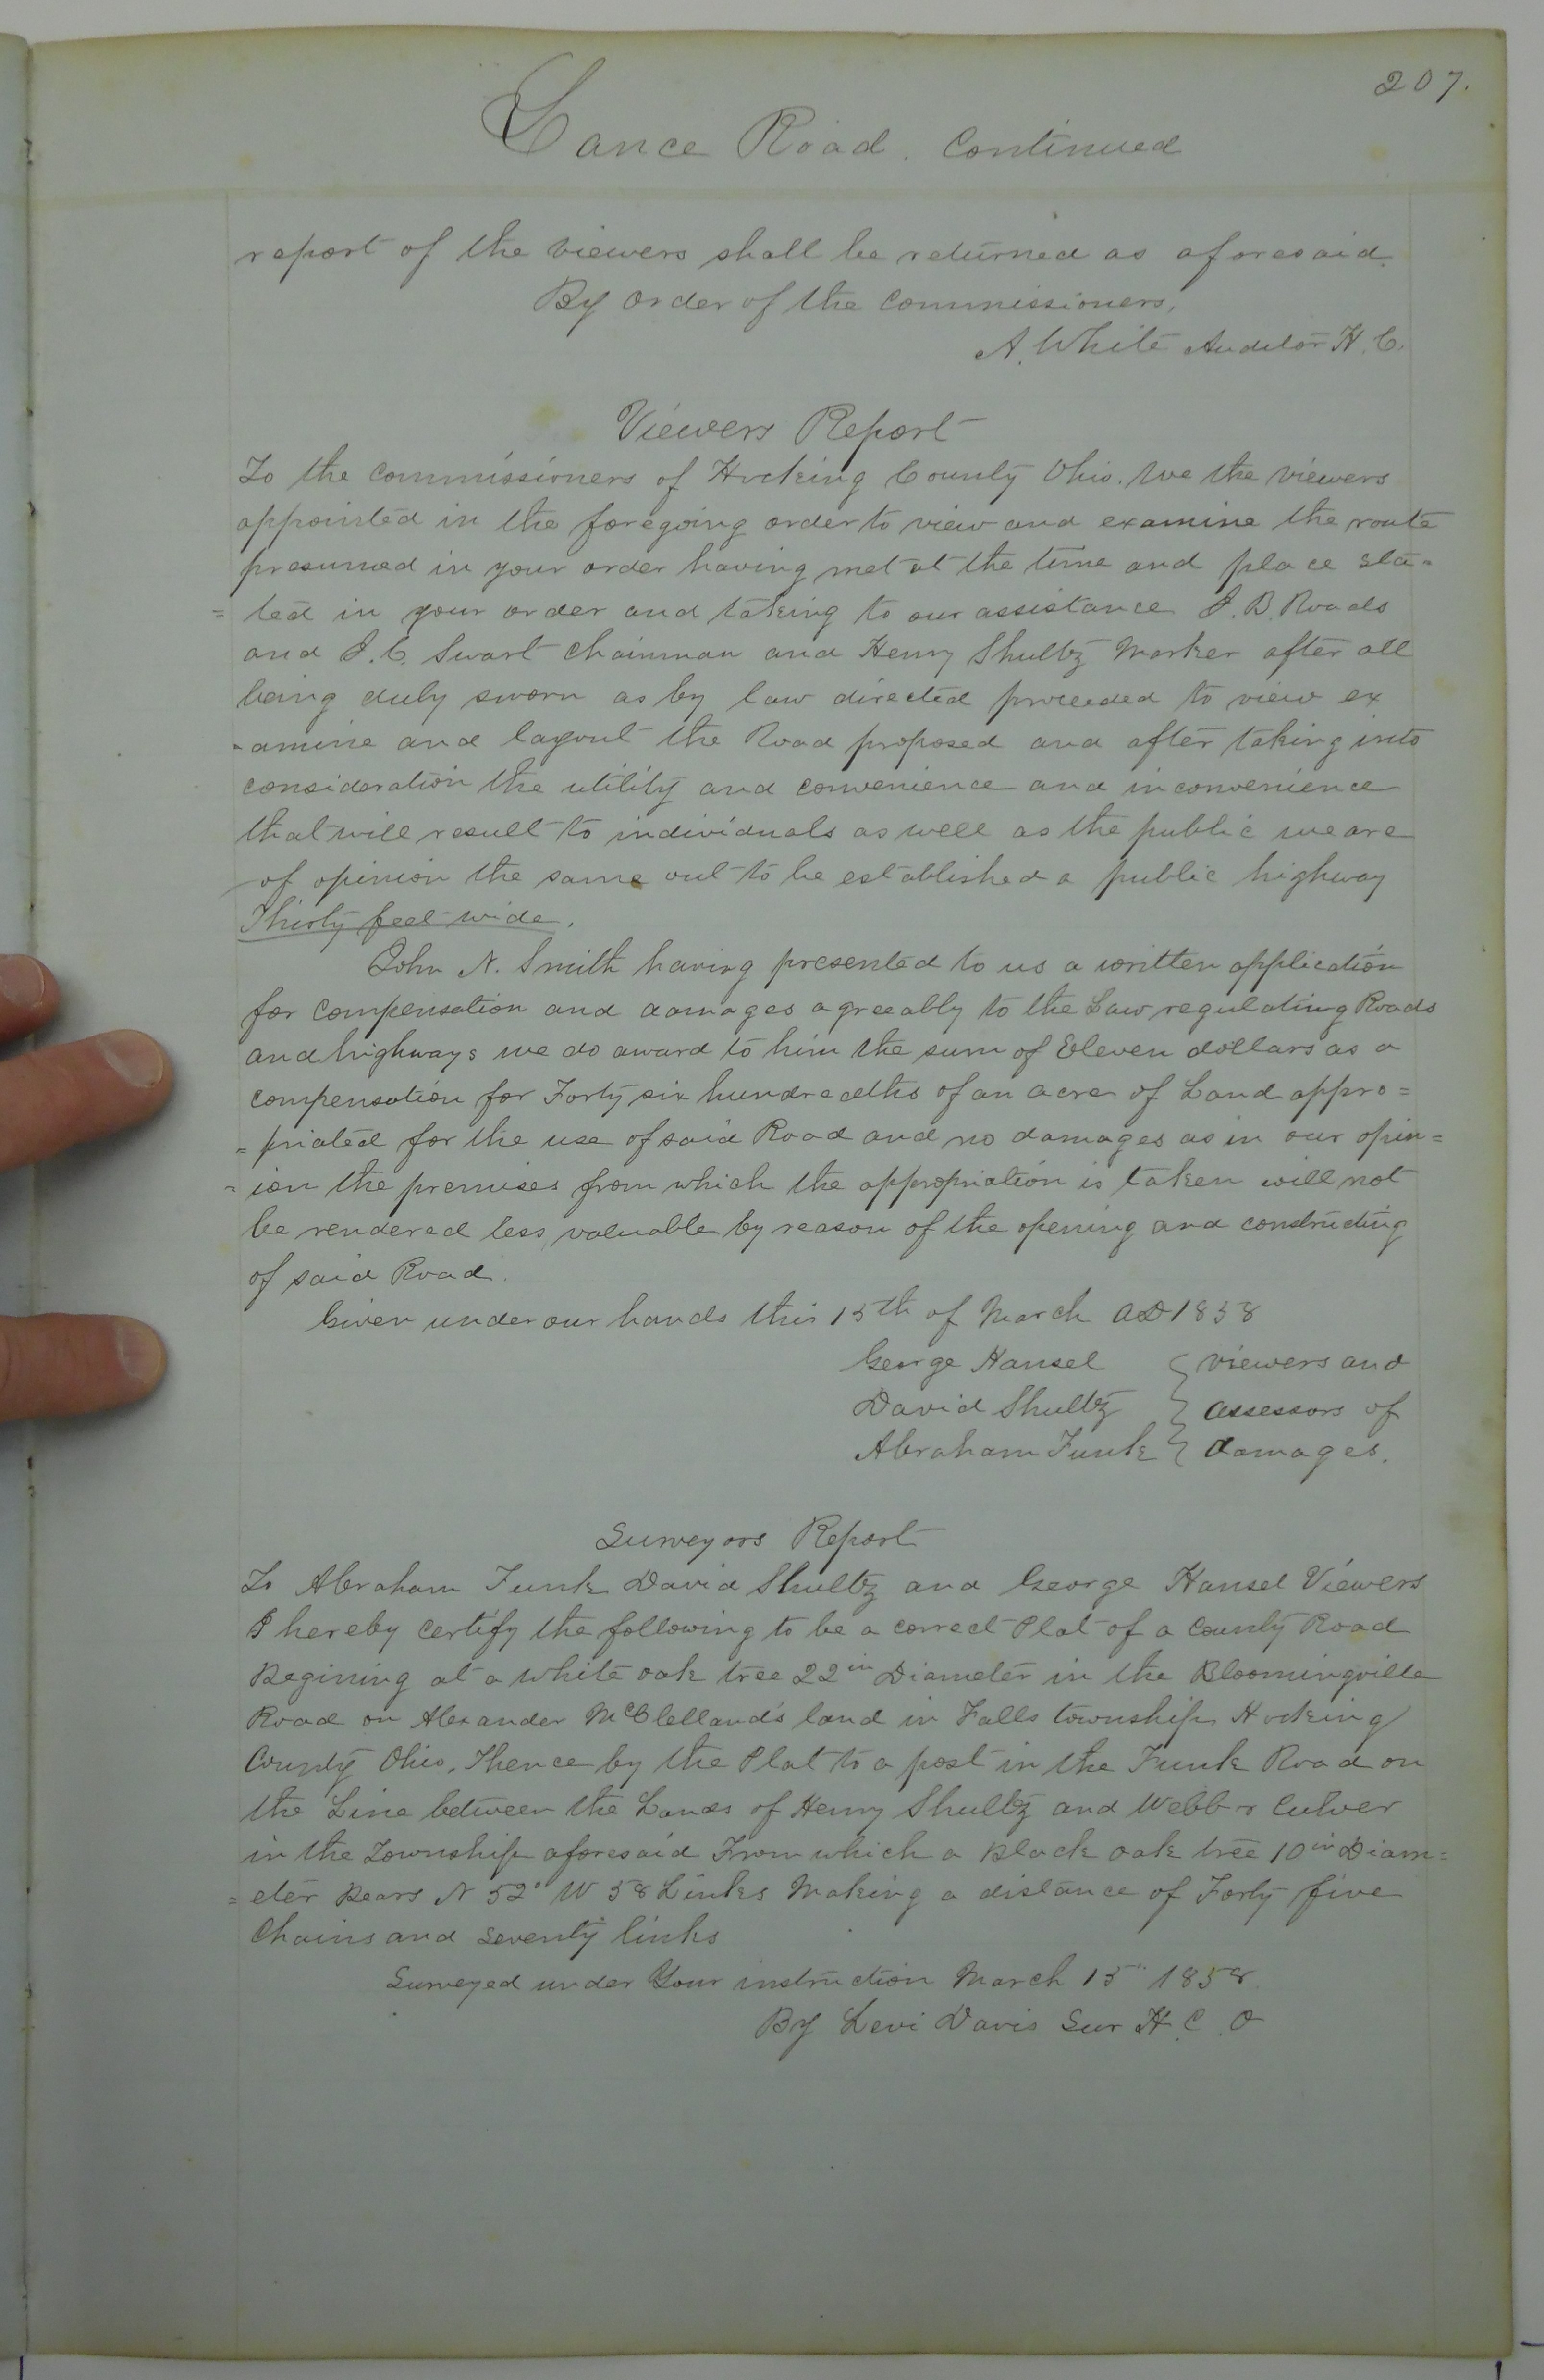 207.
Lance Road. Continued
report of the viewers shall be returned as aforesaid.
By order of the Commissioners,
A. White Auditor H. C.
Viewers Report
To the Commissioners of Hocking County Ohio. We the Viewers
appointed in the foregoing order to view and examine the route
presumed in your order having met at the time and place sta=
=ted in your order and taking to our assistance J. B. Roads
and J. C. Swart Chainman and Henry Shultz Marker after all
being duly sworn as by law directed proceeded to view ex
-amine and layout the Road proposed and after taking into
consideration the utility and convenience and inconvenience
that will result to individuals as well as the public we are
of opinion the same out to be established a public highway
Thirty feet wide.
John N. Smith having presented to us a written application
for compensation and damages agreeably to the Law regulating Roads
and highways we do award to him the sum of Eleven dollars as a
compensation for Forty six hundredths of an acre of Land appro=
=priated for the use of said Road and no damages as in our opin=
=ion the premises from which the appropriation is taken will not
be rendered less valuable by reason of the opening and constructing
of said Road.
Given under our hands this 15th of March AD 1858
George Hansel { viewers and
David Shultz } assessors of
Abraham Funk } damages.
Surveyors Report
To Abraham Funk David Shultz and George Hansel Viewers
I hereby certify the following to be a correct Plat of a County Road
Begining at a white oak tree 22 in Diameter in the Bloomingville
Road on Alexander McClelland's land in Falls township Hocking
County Ohio, Thence by the Plat to a post in the Funk Road on
the Line between the Lands of Henry Shultz and Webb & Culver
in the Township aforesaid From which a Black oak tree 10 in Diam=
=eter Bears N 52° W 58 Links Making a distance of Forty five
Chains and seventy links
Surveyed under Your instruction March 15" 1858.
By Levi Davis Sur H. C. O